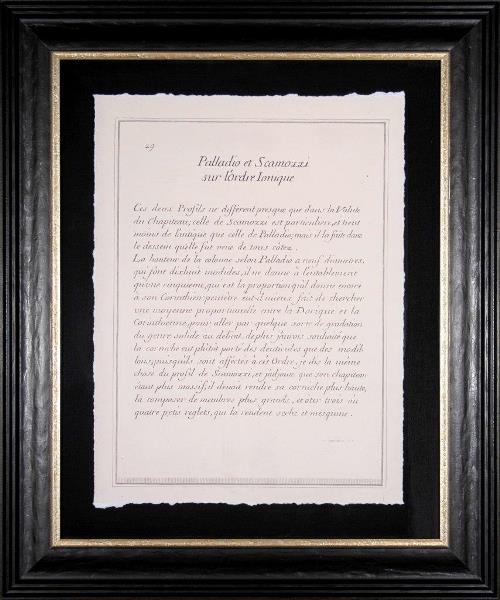 49
Palladio et Scamozzi
sur l'ordre Ionique
Ces deux Profils ne different presque que dans la Volute
du Chapiteau; celle de Scamozzi est particuliere, et tient
moins de l'antique que celle de Palladio; mais il la faite dans
le dessein qu'elle fut veue de tous côtez.
La hauteur de la colonne selon Palladio a neuf diametres,
qui font dixhuit modules, il ne donne à l'entablement
qu'une cinquieme, qui est la proportion qu'il donne encore
à son Corinthien; peutêtre eut-il mieux fait de chercher
une moyenne proportionnelle entre la Dorique et la
Corinthienne, pour aller par quelque sorte de gradation
du genre solide au délicat, de plus j'aurois souhaité que
la corniche eut plûtôt porté des denticules que des modil-
lons, puisqu'ils sont affectés à cet Ordre, je dis la même
chose du profil de Scamozzi, et j'adjoute que son chapiteau
étant plus massif, il devoit rendre sa corniche plus haute,
la composer de membres plus grands, et ôter trois ou
quatre petits reglets, qui la rendent seche et mesquine.